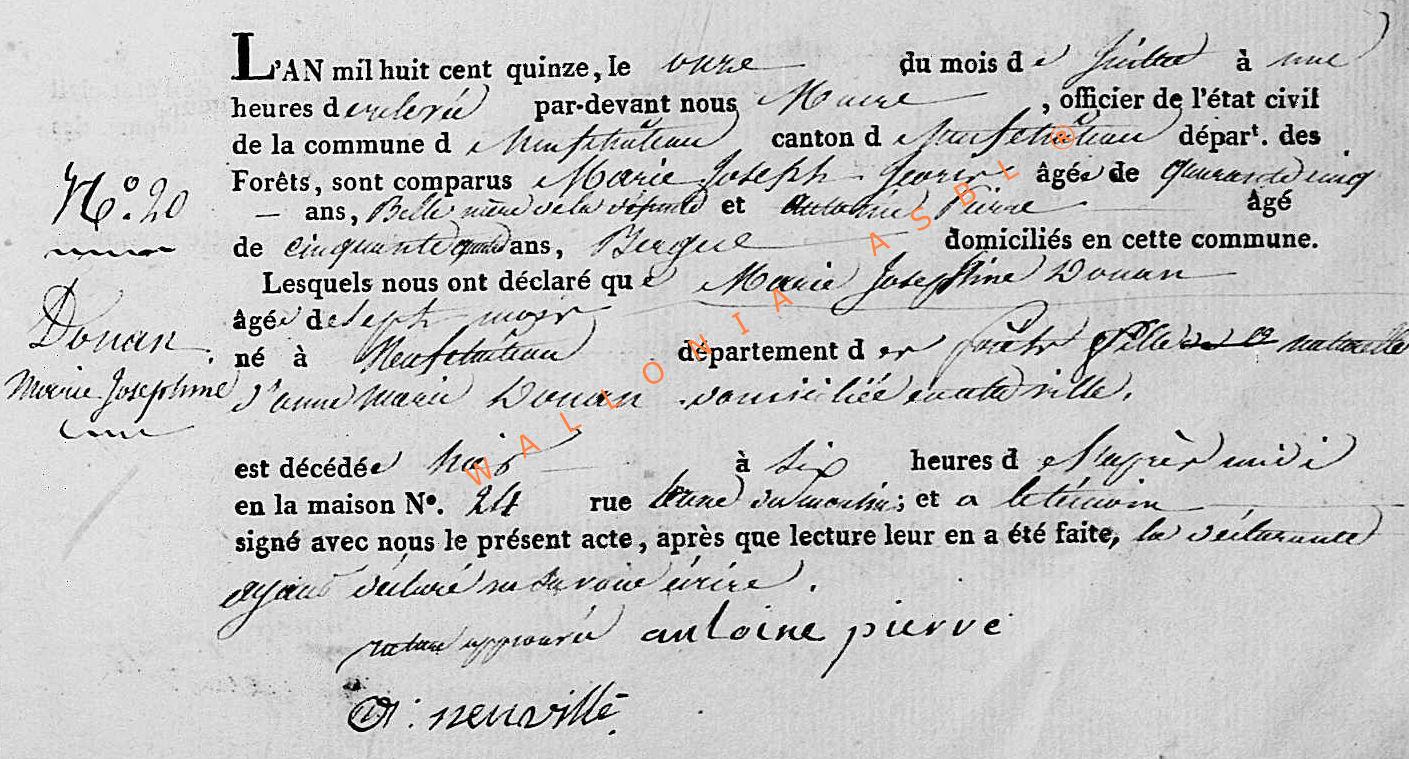 L'AN mil huit cent quinze, le onze du mois de Juillet à une
heures de relevée par-devant nous Maire, officier de l'état civil
de la commune d Neufchâteau canton d Neufchâteau départ. des
N.o 20
Forêts, sont comparus Marie Joseph âgée de quarante cinq
ans, Belle mère de la défunte et Antoine Pierre âgé
de cinquante ans, domiciliés en cette commune.
Lesquels nous ont déclaré que Marie Josephine Douan
Douan
âgée de sept mois
né à Neufchâteau département des forêts fille naturelle
Marie Josephine
d'anne marie Douan domiciliée en cette ville.
est décédée hier à six heures de l'après midi
en la maison No. 24 rue du moulin; et a le témoin
signé avec nous le présent acte, après que lecture leur en a été faite, la déclarante
ayant déclaré ne savoir écrire.
rature approuvée antoine pierre
neuville
WALLONIA ASBL @